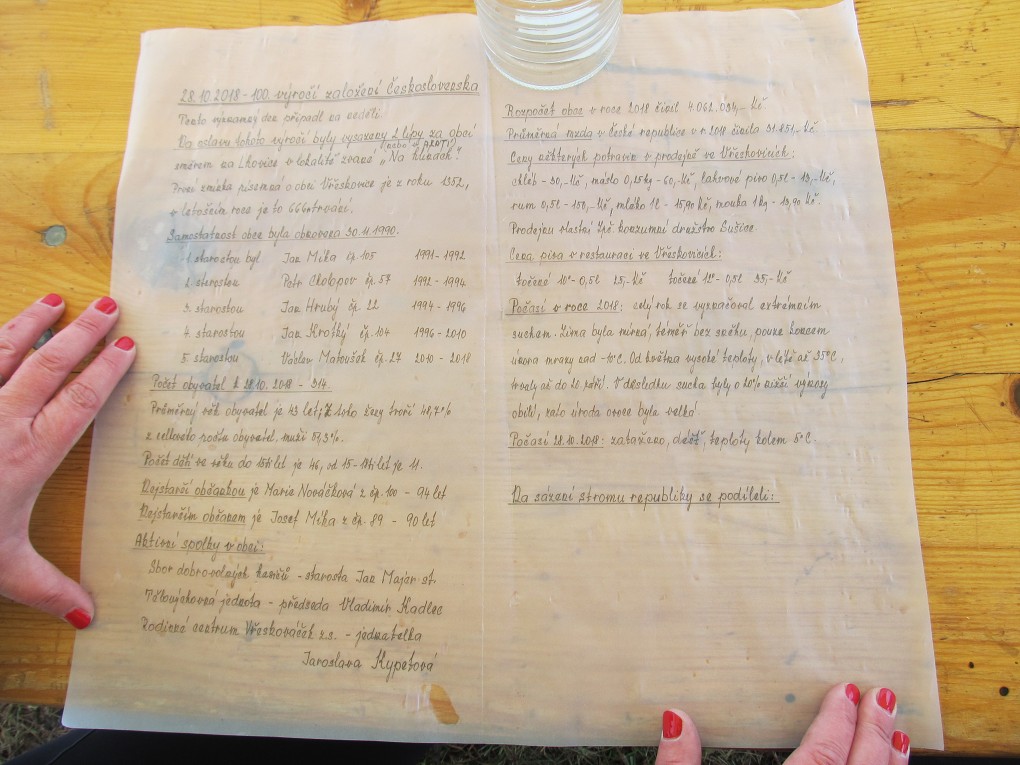 28.10.2018 - 100. výročí založení Československa
Tento významný den připadl na neděli.
Na oslavu tohoto výročí byly vysazeny 2 lípy za obcí
směrem na Lhovice v lokalitě zvané „Na hlinách"
První zmínka písemná o obci Vřeskovice je z roku 1352,
v letošním roce je to 666 výročí.
Samostatnost obce byla obnovena 30.11.1990.
1. starostou byl Jan Míka čp. 105 1991-1992
2. starostou Petr Cholopov čp. 57 1992-1994
3. starostou Jan Hrubý čp. 22 1994-1996
4. starostou Jan Krotký čp. 104 1996-2010
5. starostou Václav Matoušek čp. 27 2010-2018
Počet obyvatel k 28.10. 2018 - 314.
Průměrný věk obyvatel je 43 let, z toho ženy tvoří 48,7%
z celkového počtu obyvatel, muži 51,3%.
Počet dětí ve věku do 15ti let je 46, od 15-18ti let je 11.
Nejstarší občankou je Marie Nováčková z čp. 100 - 94 let
Nejstarším občanem je Josef Míka z čp. 89 - 90 let
Aktivní spolky v obci:
Sbor dobrovolných hasičů - starosta Jan Majer st.
Tělovýchovná jednota - předseda Vladimír Kadlec
Rodinné centrum Vřeskováček z.s. - jednatelka
Jaroslava Kypetová
Rozpočet obce v roce 2018 činil 4.062.034,- Kč
Průměrná mzda v České republice v r. 2018 činila 31.851,- Kč.
Ceny některých potravin v prodejně ve Vřeskovicích:
chléb - 30,-Kč, máslo 0,25kg - 60,-Kč, lahvové pivo 0,5l - 13,-Kč,
rum 0,5l - 150,-Kč, mléko 1l - 15,90 Kč, mouka 1kg - 13,90 Kč.
Prodejnu vlastní Zpč. konzumní družstvo Sušice.
Cena piva v restauraci ve Vřeskovicích:
točené 10° - 0,5l 25,-Kč točené 12° - 0,5l 35,-Kč
Počasí v roce 2018: celý rok se vyznačoval extrémním
suchem. Zima byla mírná, téměř bez sněhu, pouze koncem
února mrazy nad -10°C. Od května vysoké teploty, v létě až 35°C,
trvaly až do 20. září. V důsledku sucha byly o 20% nižší výnosy
obilí, zato úroda ovoce byla velká
Počasí 28.10.2018: zataženo, déšť, teploty kolem 5°C.
Na sázení stromu republiky se podíleli: